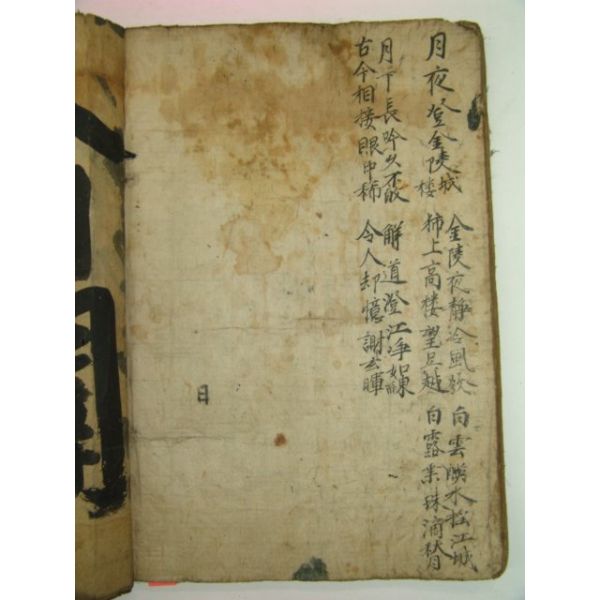 月夜登金陵城楼
金陵夜靜冷風發
上高楼望越
白雲水松江城
白露珠滴
月下長吟久不
古今相接眼中稀
解道澄江淨如練
令人却憶謝玄暉
日